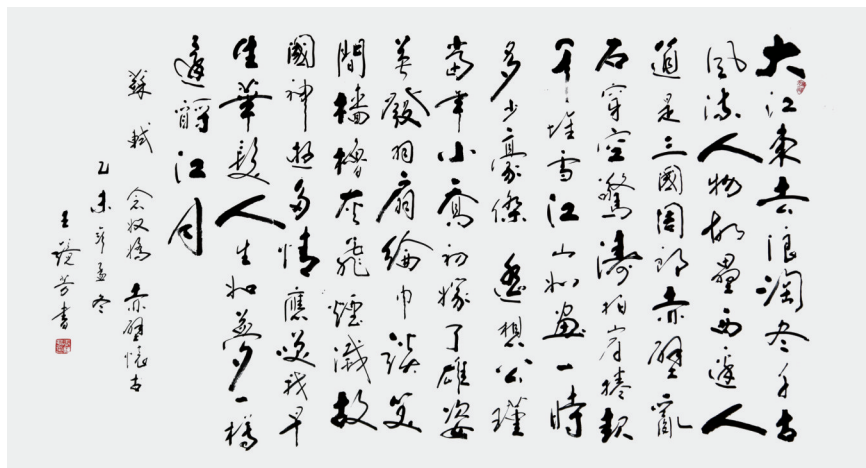 大江東去浪淘尽千古
風流人物故壘西邊人
道是三國周郎赤壁亂
石穿空驚濤拍岸捲起
千堆雪江山如畫一時
多少豪傑 遙想公瑾
當年小喬初嫁了雄姿
英發羽扇綸巾談笑
間檣櫓灰飛煙滅故
國神遊多情應笑我早
生華髮人生如夢一樽
還酹江月
蘇軾 念奴嬌 赤壁懷古
乙未年孟冬
王芳書